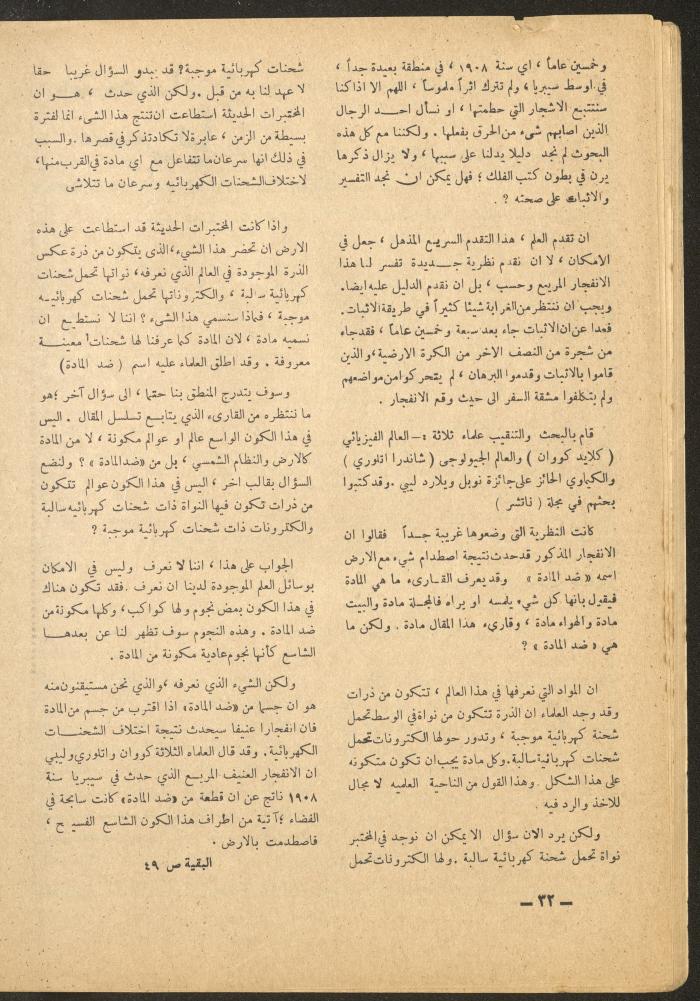 وخمسين عاماً ، اي سنة ١٩٠٨ ، في منطقة بعيدة جداً ،
في اوسط سيبريا ، ولم تترك اثراً ملموساً ، اللهم الا اذا كنا
سنتتبع الاشجار التي حطمتها ، او نسأل احــد الرجال
الذين اصابهم شيء من الحرق بفعلها . ولكننا مع كل هذه
البحوث لم نجد دليلا يدلنا على سببها ، ولا يزال ذكرها
يرن في بطون كتب الفلك ؛ فهل يمكن ان نجد التفسير
والاثبات على صحته ؟ .
ان تقدم العلم ، هذا التقدم السريع المذهل ، جعل في
الامكان ، لا ان نقدم نظرية جــديدة تفسر لنا هذا
الانفجار المريع وحسب ، بل ان نقدم الدليل عليه ايضا.
ويجب ان ننتظر من الغرابة شيئا كثيراً في طريقة الاثبات.
فعدا عن ان الاثبات جاء بعد سبعة وخمسين عاماً ، فقد جاء
من شجرة من النصف الاخر من الكرة الارضية ، والذين
قاموا بالاثبات وقدموا البرهان ، لم يتحركوا من مواضعهم
ولم يتكلفوا مشقة السفر الى حيث وقع الانفجار .
قام بالبحث والتنقيب علماء ثلاثة :- العالم الفيزيائي
( كلايد كووان ) والعالم الجيولوجي ( شاندرا اتلوري )
والكيماوي الحائز على جائزة نوبل ويلارد ليبي . وقد كتبوا
بحثهم في مجلة ( ناتشر )
كانت النظرية التى وضعوها غريبة جــداً فقالوا ان
الانفجار المذكور قد حدث نتيجة اصطدام شيء مع الارض
اسمه « ضد المادة » وقد يعرف القــارىء ما هي المادة
فيقول بانها كل شيء يلمسه او يراه فالمجــلة مادة والبيت
مادة والهواء مادة ، وقاريء هذا المقال مادة . ولكن ما
هي « ضد المادة » ؟
ان المواد التي نعرفها في هذا العالم ، تتكون من ذرات
وقد وجد العلماء ان الذرة تتكون من نواة في الوسط تحمل
شحنة كهربائية موجبة ، وتدور حولها الكترونات تحمل
شحنات كهربائية سالبة . وكل مادة يجب ان تكون متكونه
على هذا الشكل . وهذا القول من الناحية العلميه لا مجال
للاخذ والرد فيه .
ولكن يرد الان سؤال الا يمكن ان نوجد في المختبر
نواة تحمل شحنة كهربائية سالبة . ولها الكترونات تحمل
شحنات كهربائية موجبة ؟ قد يبدو السؤال غريبا حقا
لا عهد لنا به من قبل . ولكن الذي حدث ، هــو ان
المختبرات الحديثة استطاعت ان تنتج هذا الشىء انما لفترة
بسيطة من الزمن ، عابرة لا تكاد تذكر في قصرها . والسبب
في ذلك انها سرعان ما تتفاعل مع اي مادة في القرب منها ،
لاختلاف الشحنات الكهربائيه وسرعان ما تتلاشى
واذا كانت المختبرات الحديثة قد استطاعت على هذه
الارض ان تحضر هذا الشيء ، الذى يتكون من ذرة عكس
الذرة الموجودة في العالم الذي نعرفه ، نواتها تحمل شحنات
كهربائية سالبة ، والكتروناتها تحمل شحنات كهربائيــه
موجبة ، فماذا سنسمي هذا الشىء ؟ اننا لا نستطيـع ان
نسميه مادة ، لان المادة كما عرفنا لها شحنات ! معينــة
معروفة . وقد اطلق العلماء عليه اسم ( ضد المادة )
وسوف يتدرج المنطق بنا حتما ، الى سؤال آخر ؛ هو
ما ننتظره من القارىء الذي يتابع تسلسل المقال . اليس
في هذا الكون الواسع عالم او عوالم مكونة ، لا من المادة
كالارض والنظام الشمسي ، بل من « ضد المادة » ؟ ولنضع
السؤال بقالب اخر ، اليس في هذا الكون عوالم تتكون
من ذرات تكون فيها النواة ذات شحنات كهربائيه سالبة
والكترونات ذات شحنات كهربائية موجبة ؟
الجواب على هذا ، اننا لا نعرف وليس في الامكان
بوسائل العلم الموجودة لدينا ان نعرف . فقد تكون هناك
في هذا الكون بعض نجوم ولها كواكب ، وكلها مكونة من
ضد المادة . وهذه النجوم سوف تظهر لنا عن بعدهــا
الشاسع كأنها نجوم عادية مكونة من المادة .
ولكن الشيء الذي نعرفه ، والذي نحن مستيقنون منه
هو ان جسما من « ضد المادة » اذا اقترب من جسم من المادة
فان انفجارا عنيفا سيحدث نتيجة اختلاف الشحنــات
الكهربائية . وقد قال العلماء الثلاثة كووان واتلوري وليبي
ان الانفجار العنيف المريع الذي حدث في سيبريا سنة
١٩٠٨ ناتج عن ان قطعة من « ضد المادة » كانت سابحة في
الفضاء ؛ آتية من اطراف هذا الكون الشاسع الفسيـح ،
فاصطدمت بالارض .
البقية ص ٤٩
– ٣٢ –